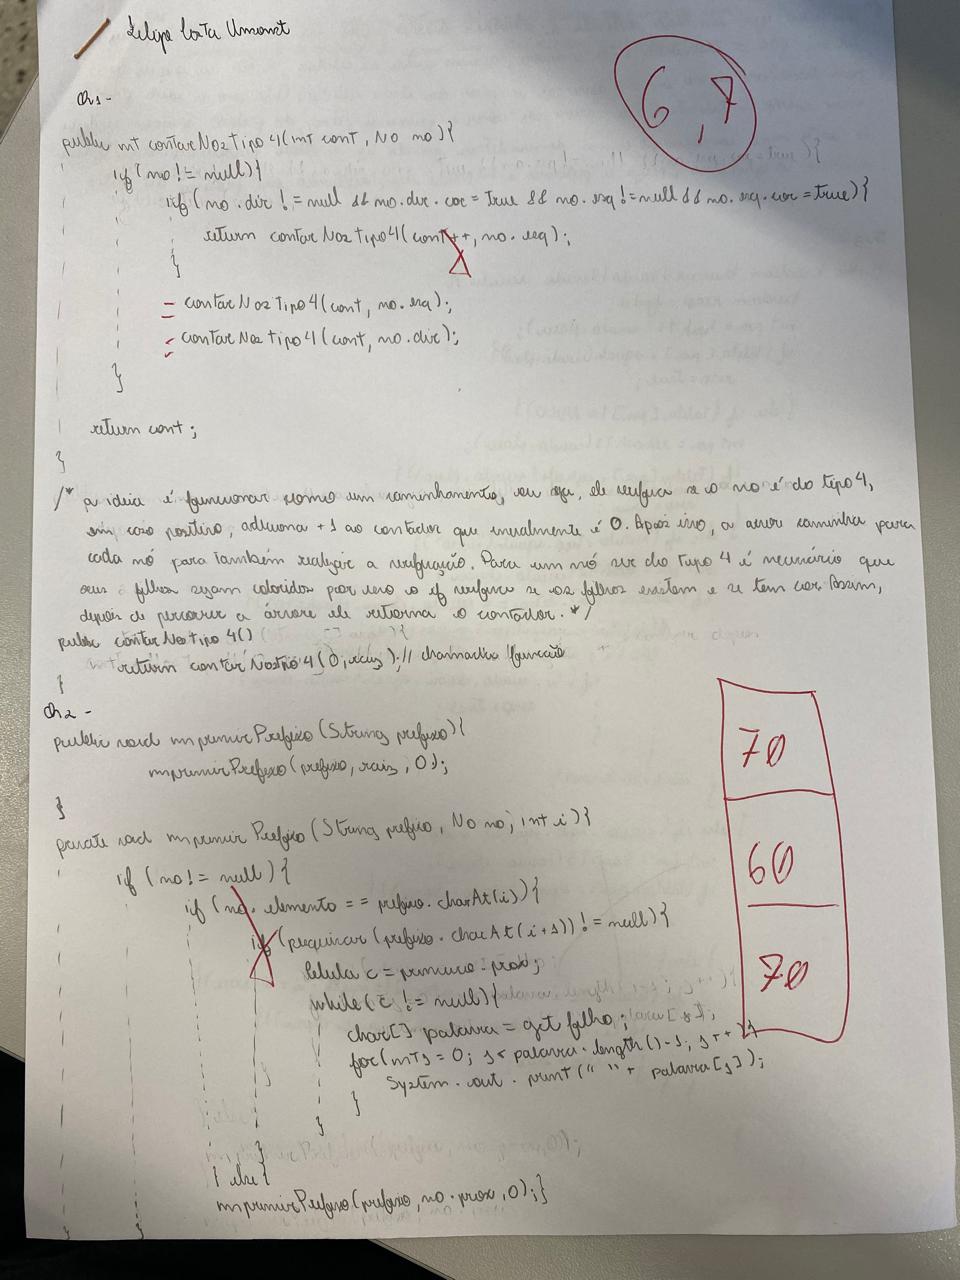 Felipe Costa
6,7
Q1-
public int contarNosTipo4(int cont, No no){
if (no != null){
if (no.dir != null && no.dir.cor = true && no.esq != null && no.esq.cor = true){
return contarNosTipo4(cont++, no.esq);
}
contarNosTipo4(cont, no.esq);
contarNosTipo4(cont, no.dir);
}
return cont;
}
/* a ideia é funcionar como um caminhamento, ou seja, ele verifica se o no é do tipo 4,
em caso positivo, adiciona +1 ao contador que inicialmente é 0. Após isso, a arvore caminha para
cada nó para também realizar a verificação. Para um nó ser do tipo 4 é necessário que
seus filhos sejam coloridos por isso o if verifica se os filhos existem e se tem cor. Assim,
depois de percorrer a árvore ele retorna o contador. */
public contarNosTipo4()
return contarNosTipo4(0, raiz); // chamada função
}
Q2-
public void imprimirPrefixo (String prefixo){
imprimirPrefixo (prefixo, raiz, 0);
}
private void imprimirPrefixo (String prefixo, No no, int i){
if (no != null){
if (no.elemento == prefixo.charAt(i)){
if (pesquisar (prefixo.charAt(i+1)) != null){
Celula c = primeiro.prox;
while (c != null){
char[] palavra = get filho;
for(int j = 0; j < palavra.length()-1; j++){
System.out.print(" " + palavra[j]);
}
}
}
} else {
imprimirPrefixo(prefixo, no.prox, 0);}
70
60
70